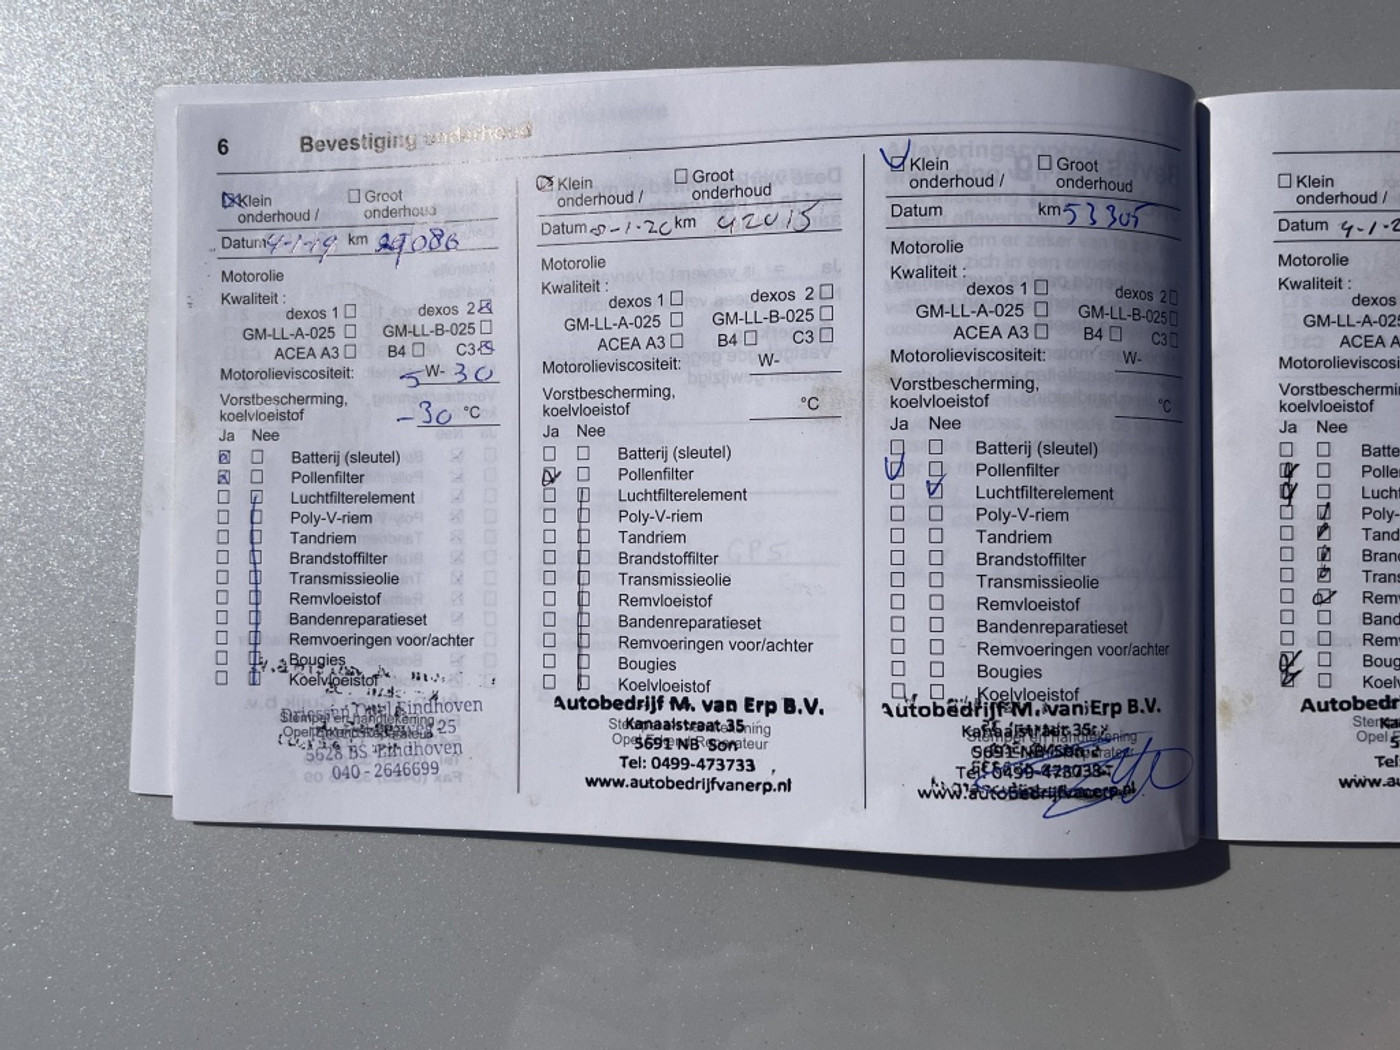 6 Bevestiging onderhoud
Klein onderhoud / Groot onderhoud
Datum 4-1-19 km 29086
Motorolie
Kwaliteit :
dexos 1 dexos 2
GM-LL-A-025 GM-LL-B-025
ACEA A3 B4 C3
Motorolieviscositeit: 5 W- 30
Vorstbescherming,
koelvloeistof -30 °C
Ja Nee
Batterij (sleutel)
Pollenfilter
Luchtfilterelement
Poly-V-riem
Tandriem
Brandstoffilter
Transmissieolie
Remvloeistof
Bandenreparatieset
Remvoeringen voor/achter
Bougies
Koelvloeistof
Stempel en handtekening
Eindhoven
25
5628 BS Eindhoven
040 - 2646699
Klein onderhoud / Groot onderhoud
Datum 8-1-20 km 42015
Motorolie
Kwaliteit :
dexos 1 dexos 2
GM-LL-A-025 GM-LL-B-025
ACEA A3 B4 C3
Motorolieviscositeit: W-
Vorstbescherming,
koelvloeistof °C
Ja Nee
Batterij (sleutel)
Pollenfilter
Luchtfilterelement
Poly-V-riem
Tandriem
Brandstoffilter
Transmissieolie
Remvloeistof
Bandenreparatieset
Remvoeringen voor/achter
Bougies
Koelvloeistof
Autobedrijf M. van Erp B.V.
Kanaalstraat 35
5691 NB Son
Tel: 0499-473733
www.autobedrijfvanerp.nl
Klein onderhoud / Groot onderhoud
Datum km 53305
Motorolie
Kwaliteit :
dexos 1 dexos 2
GM-LL-A-025 GM-LL-B-025
ACEA A3 B4 C3
Motorolieviscositeit: W-
Vorstbescherming,
koelvloeistof °C
Ja Nee
Batterij (sleutel)
Pollenfilter
Luchtfilterelement
Poly-V-riem
Tandriem
Brandstoffilter
Transmissieolie
Remvloeistof
Bandenreparatieset
Remvoeringen voor/achter
Bougies
Koelvloeistof
Autobedrijf M. van Erp B.V.
Kanaalstraat 35
5691 NB Son
Tel: 0499-473733
www.autobedrijfvanerp.nl
Klein
onderhoud /
Datum 9-1-2
Motorolie
Kwaliteit :
dexos
GM-LL-A-02
ACEA A
Motorolieviscos
Vorstbeschermi
koelvloeistof
Ja Nee
Batte
Polle
Luch
Poly-
Tand
Bran
Trans
Remv
Band
Remv
Boug
Koelv
Autobedr